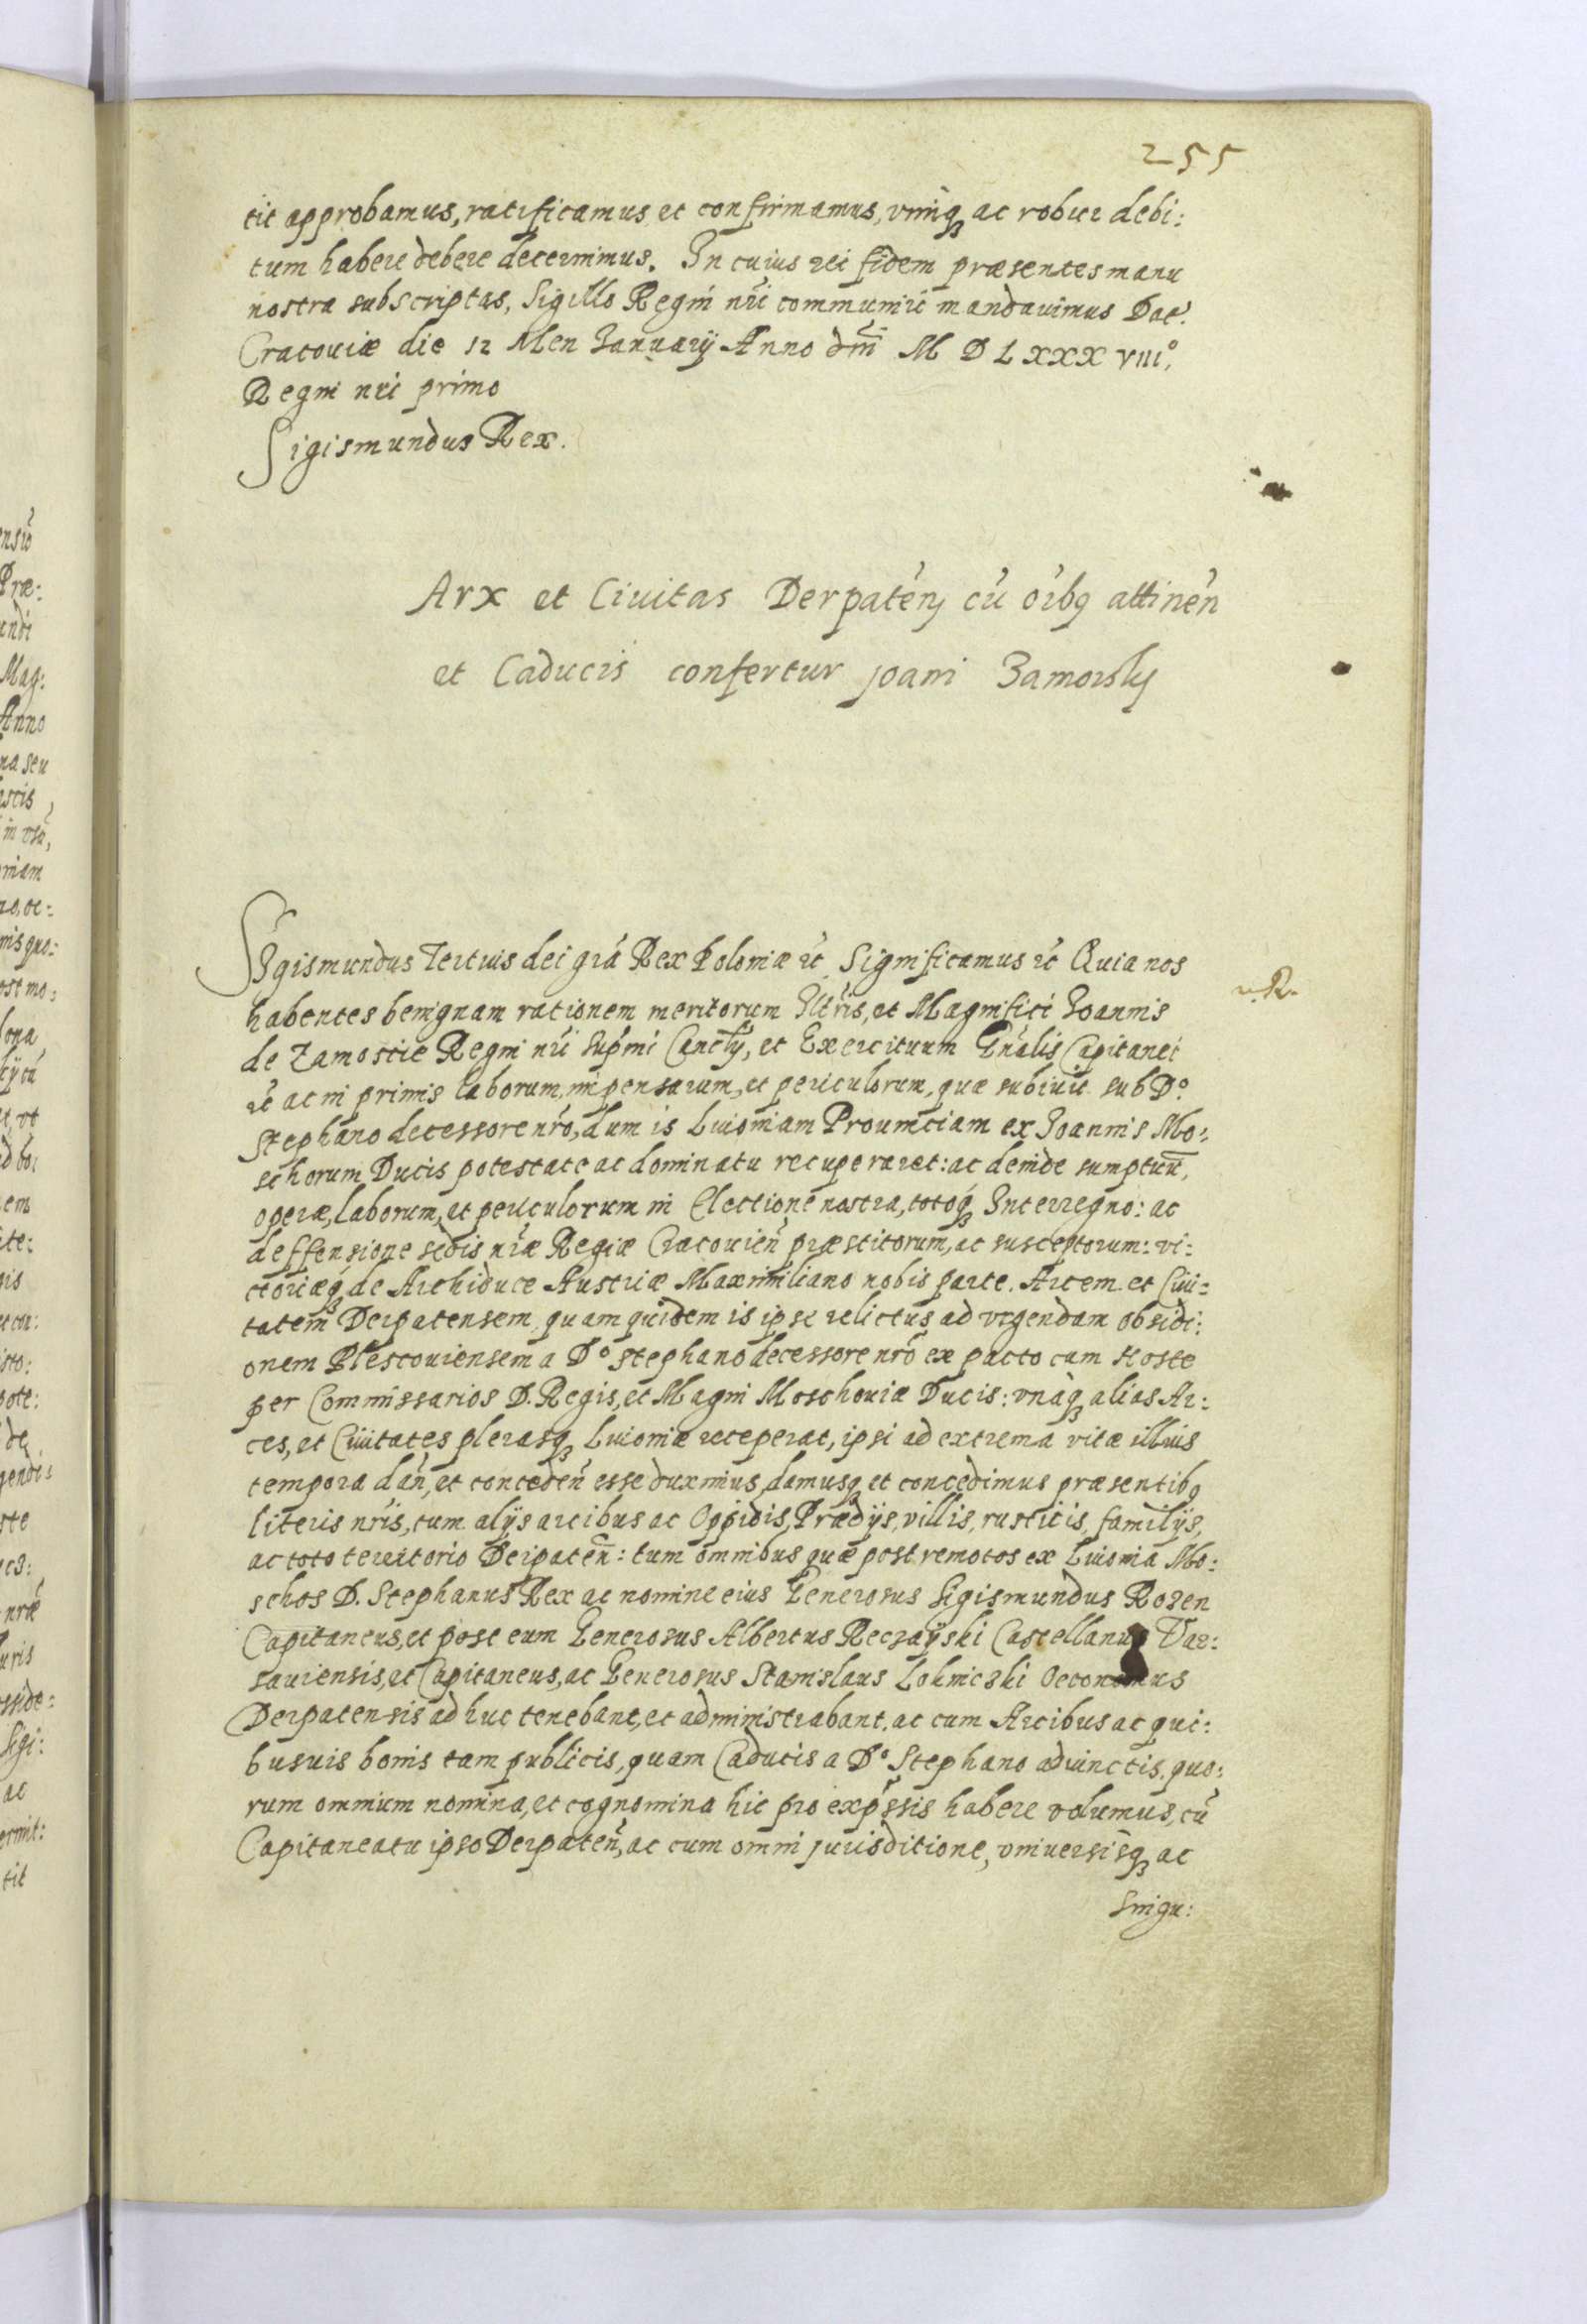 255
tit approbamus, ratificamus et confirmamus, vimq₃ ac robur debi:
tum habere debere decernimus. In cuius rei fidem præsentes manu
nostra subscriptas, Sigillo Regni nr̃i communiri mandauimus Dat.
Cracouiæ die 12 Men Januarij Anno dm̃i M D L XXX VIII°,
Regni nr̃i primo
Sigismundus Rex.
Arx et Ciuitas Derpateñ cũ oĩbq attineñ
et Caducis confertur joanni Zamoisky
Sigismundus Tertius dei gr̃a Rex Poloniæ rc̃ Significamus rc̃ Quia nos
habentes benignam rationem meritorum Ill̃ris, et Magnifici Joannis
n. R.
de Zamoscie Regni nr̃i Supr̃mi Cancl̃rij, et Exercituum Gñalis Capitanei
rc̃ ac in primis laborum, impensarum, et periculorum, quæ subiuit sub D°
Stephano decessore nr̃o, dum is Liuoniam Prouinciam ex Joannis Mo:
schorum Ducis potestate ac dominatu recuperaret: ac deinde sumptuũ,
operæ, laborum, et periculorum in Electione nostra, totoq₃ Interregno: ac
deffensione sedis nr̃æ Regiæ Cracouieñ præstitorum, ac susceptorum: vi:
ctoriæq₃ de Archiduce Austriæ Maximiliano nobis parte. Arcem et Ciui:
tatem Derpatensem quam quidem is ipse relictus ad vrgendam obsidi:
onem Plescouiensem a D° Stephano decessore nr̃o ex pacto cum Hoste
per Commissarios D. Regis, et Magni Moschouiæ Ducis: vnàq₃ alias Ar:
ces, et Ciuitates plerasq₃ Liuoniæ receperat, ipsi ad extrema vitæ illius
tempora dañ, et concedeñ esse duximus, damusq₃ et concedimus præsentibq
literis nr̃is, cum alijs arcibus ac Oppidis, Prædijs, villis, rusticis, familijs,
ac toto territorio Derpateñ: tum omnibus quæ post remotos ex Liuonia Mo:
schos D. Stephanus Rex ac nomine eius Generosus Sigismundus Rozen
Capitaneus, et post eum Generosus Albertus Reczayski Castellanus Var:
sauiensis, et Capitaneus, ac Generosus Stanislaus Lokniczki Oeconomus
Derpatensis adhuc tenebant, et administrabant, ac cum Arcibus ac qui:
busuis bonis tam publicis, quam Caducis a D° Stephano adiunctis, quo:
rum omnium nomina, et cognomina hic pro exp̃ssis habere volumus, cũ
Capitaneatu ipso Derpateñ, ac cum omni jurisditione, vniuersisq₃ ac
Singu: